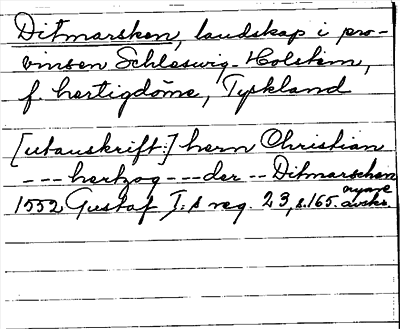 Ditmarsken, landskap i pro-
vinsen Schleswig-Holstein,
f. hertigdöme, Tyskland
[utanskrift:] hern Christian
--- hertzog --- der -- Ditmarschen
1552 Gustaf I:s reg. 23, s.165. nyare avskr.